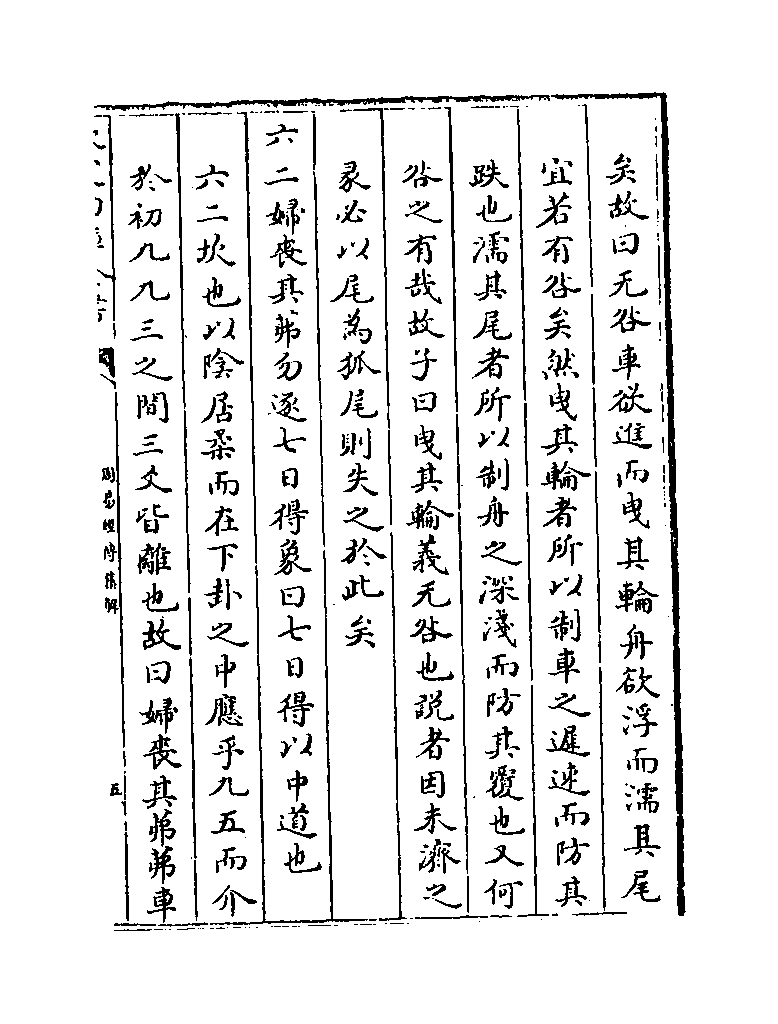 矣故曰无咎車欲進而曳其輪舟欲浮而濡其尾
宜若有咎矣然曳其輪者所以制車之遲速而防其
跌也濡其尾者所以制舟之深淺而防其覆也又何
咎之有哉故子曰曳其輪義无咎也説者因未濟之
彖必以尾為狐尾則失之於此矣
六二婦喪其茀勿逐七日得象曰七日得以中道也
六二坎也以陰居柔而在下卦之中應乎九五而介
於初九九三之間三爻皆離也故曰婦喪其茀茀車
周易經傳集解
五